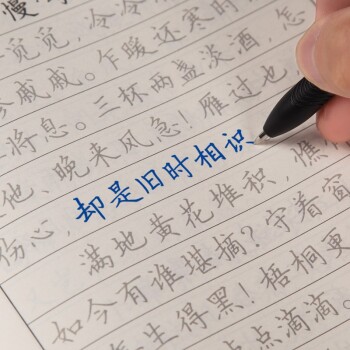 慢
觅觅，冷冷
戚戚。乍暖还寒时
将息。三杯两盏淡酒，怎
他、晚来风急！雁过也
伤心，却是旧时相识
满地黄花堆积，憔
如今有谁堪摘？守着窗
生得黑！梧桐更
点点滴滴。